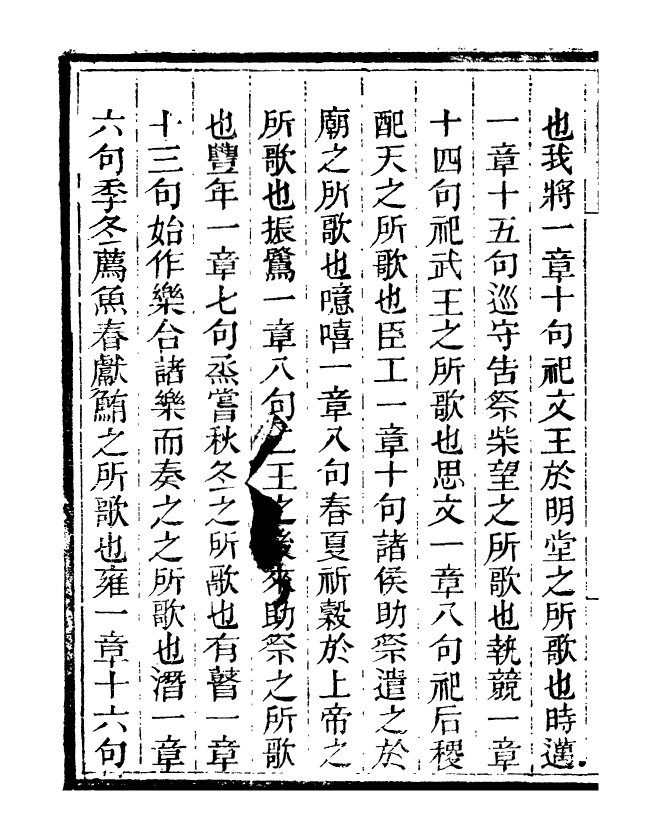 也我將一章十句祀文王於明堂之所歌也時邁
一章十五句巡守告祭柴望之所歌也執競一章
十四句祀武王之所歌也思文一章八句祀后稷
配天之所歌也臣工一章十句諸侯助祭遣之於
廟之所歌也噫嘻一章八句春夏祈穀於上帝之
所歌也振鷺一章八句王之後來助祭之所歌
也豐年一章七句烝嘗秋冬之所歌也有瞽一章
十三句始作樂合諸樂而奏之之所歌也潛一章
六句季冬薦魚春獻鮪之所歌也雍一章十六句